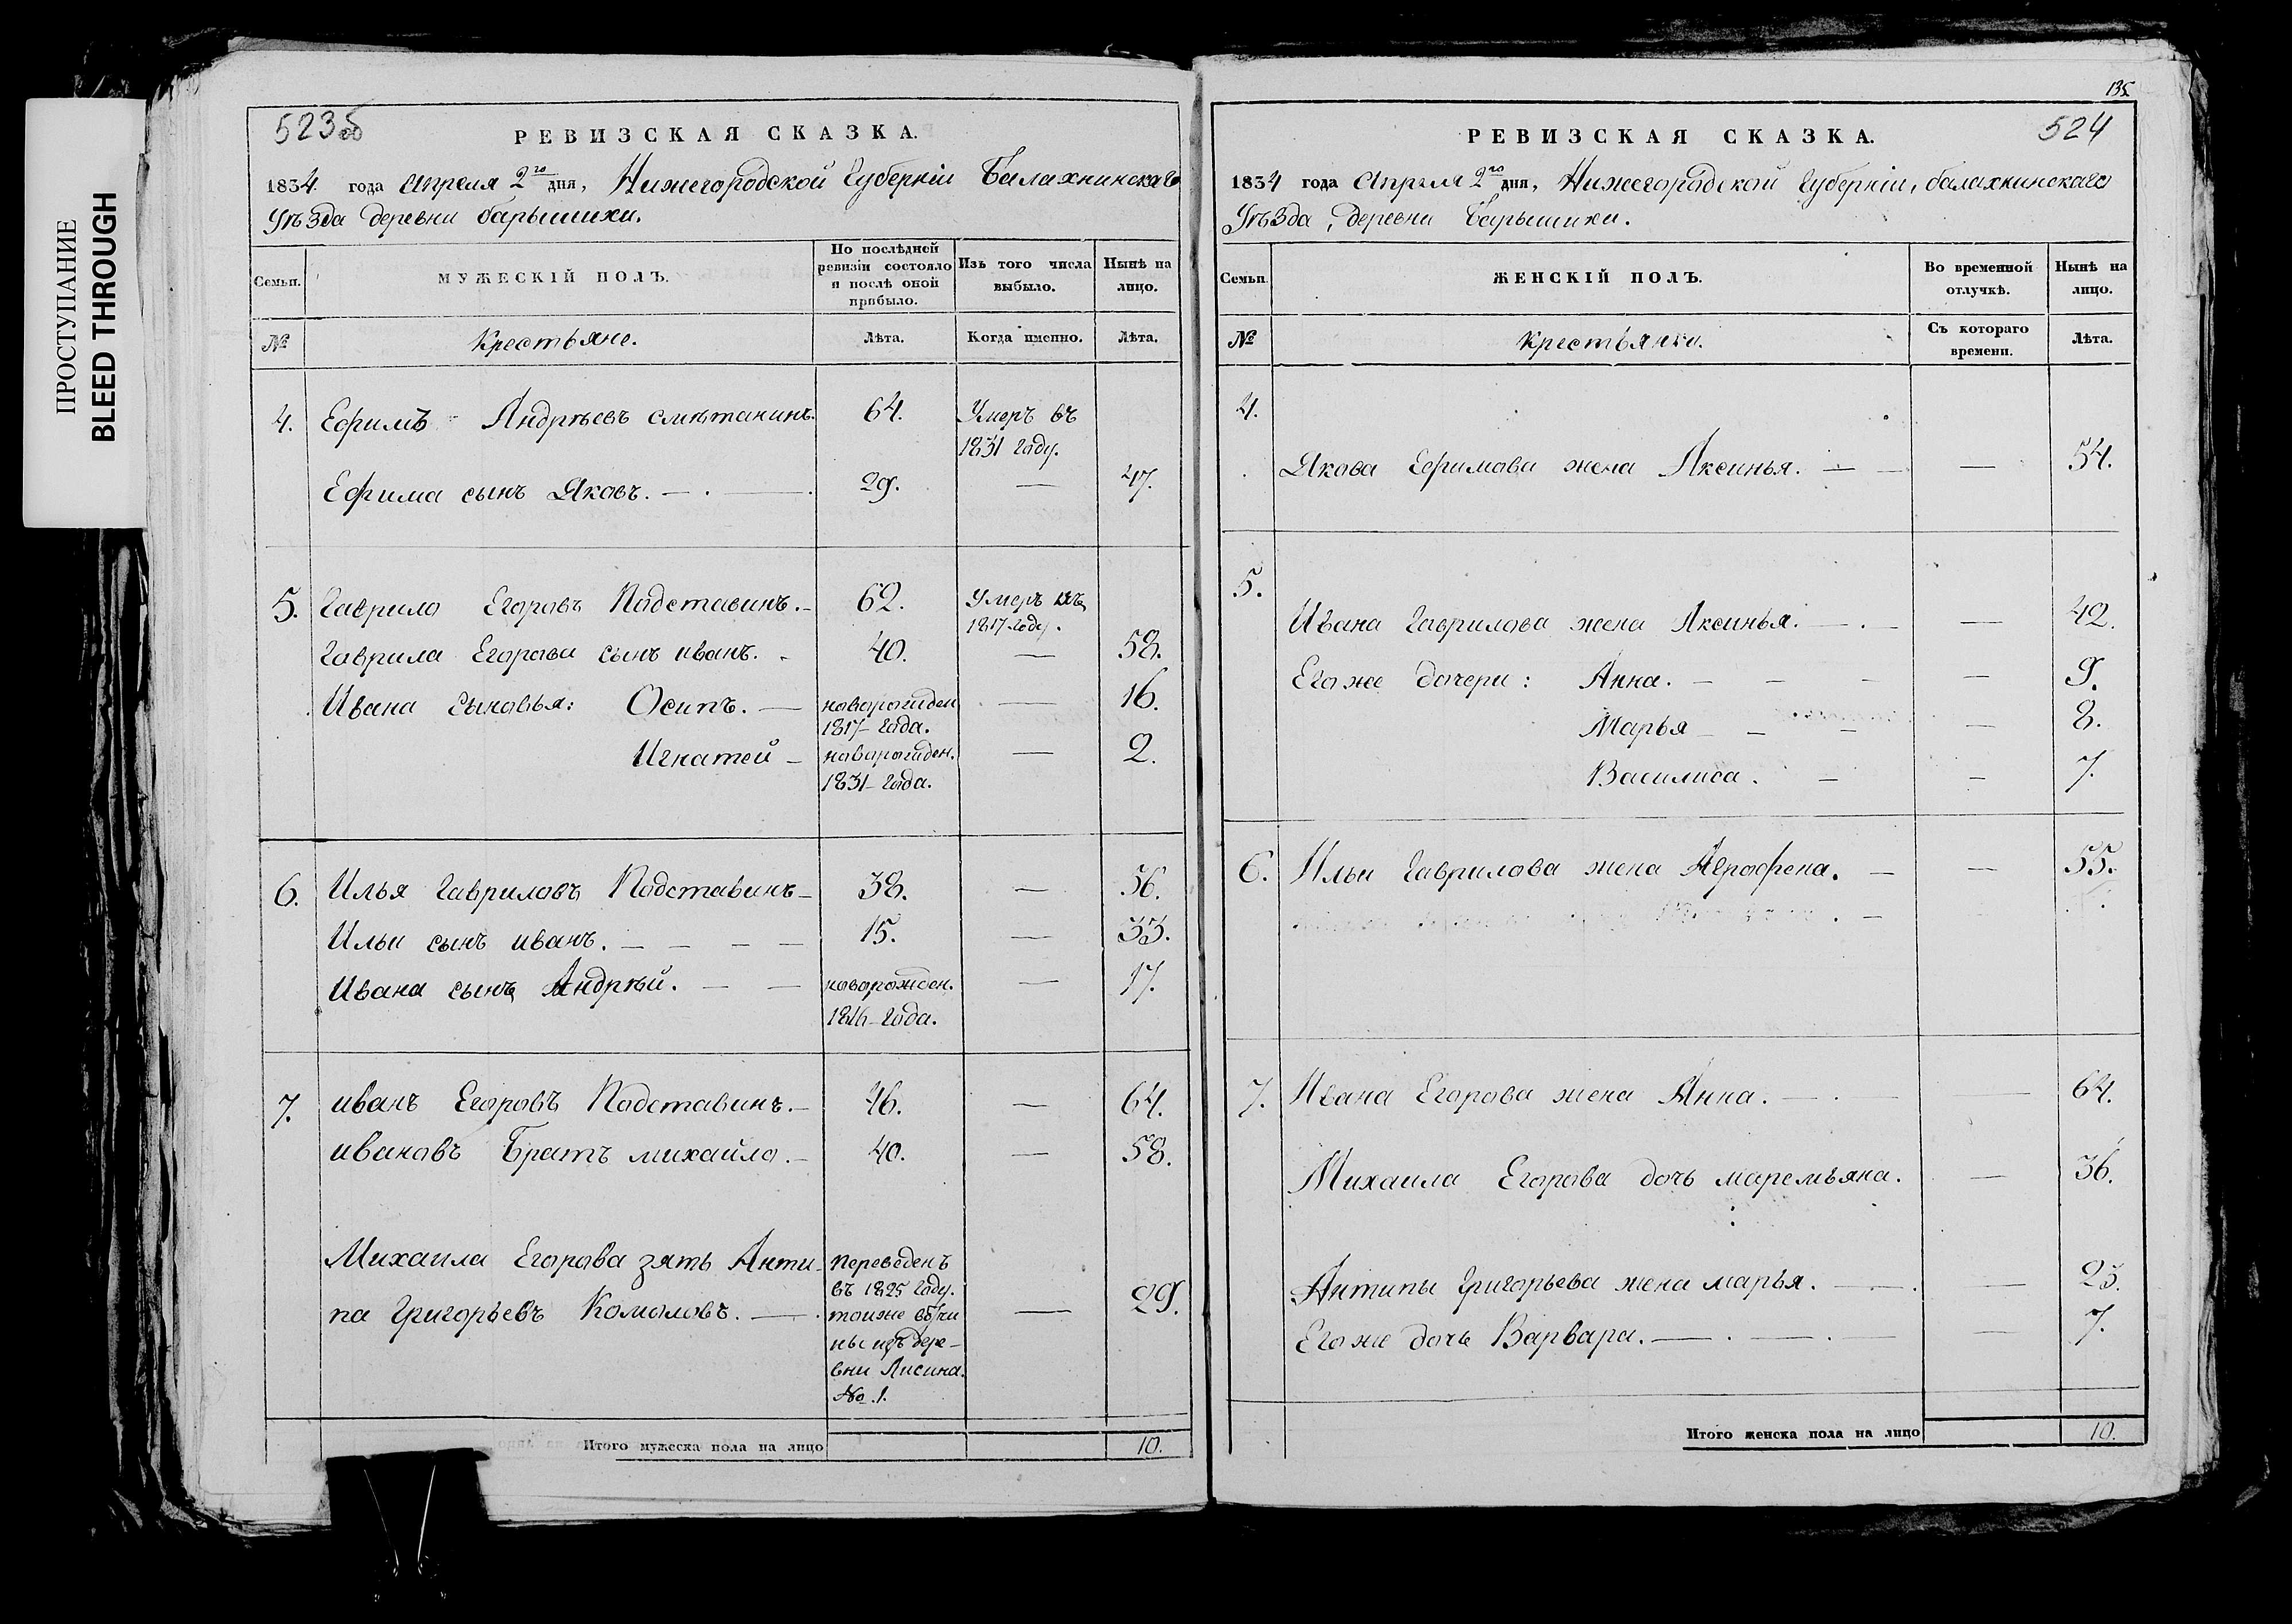 ПРОСТУПАНИЕ
BLEED THROUGH
523об
РЕВИЗСКАЯ СКАЗКА.
1834 года Апреля 2го дня, Нижегородской Губернiи Балахнинскаго
Уѣзда деревни барышихи.
Семьи.
МУЖЕСКIЙ ПОЛЪ.
По послѣдней ревизiи состояло и послѣ оной прибыло.
Изъ того числа выбыло.
Нынѣ на лицо.
№
Крестьяне.
Лѣта.
Когда именно.
Лѣта.
4. Ефимъ Андрѣевъ смѣтанинъ. 64. Умеръ въ
1831 году.
Ефима сынъ Яковъ. — 29. — 47.
5. Гаврило Егоровъ Подставинъ. 62. Умеръ въ
1817 году.
Гаврила Егорова сынъ иванъ. 40. — 58.
Ивана сыновья: Осипъ. — новорожден — 16.
1817 года.
Игнатей — новорожден. — 2.
1831 года.
6. Илья Гавриловъ Подставинъ — 38. — 56.
Ильи сынъ иванъ. — 15. — 33.
Ивана сынъ Андрѣй. — новорожден. — 17.
1816 года.
7. иванъ Егоровъ Подставинъ. — 46. — 64.
ивановъ Братъ михайло. — 40. — 58.
Михаила Егорова зять Анти- переведенъ
въ 1825 году.
па Григорьевъ Комоловъ. — тойже вотчи — 29.
ны изъ дере-
вни Лисина.
№ 1.
Итого мужеска пола на лицо 10.
135
524
РЕВИЗСКАЯ СКАЗКА.
1834 года Апреля 2го дня, Нижегородской Губернiи, балахнинскаго
Уѣзда, деревни Барышихи.
Семьи.
ЖЕНСКIЙ ПОЛЪ.
Во временной отлучкѣ.
Нынѣ на лицо.
№
Крестьянки.
Съ котораго времени.
Лѣта.
4.
Якова Ефимова жена Аксинья. — — 54.
5.
Ивана Гаврилова жена Аксинья. — — 42.
Его же дочери: Анна. — — 9.
Марья — — 8.
Василиса. — — 7.
6. Ильи Гаврилова жена Аграфена. — — 55.
7. Ивана Егорова жена Анна. — — 64.
Михаила Егорова дочь маремьяна. — 36.
Антипы Григорьева жена марья. — — 25.
Его же дочь Варвара. — — 7.
Итого женска пола на лицо 10.